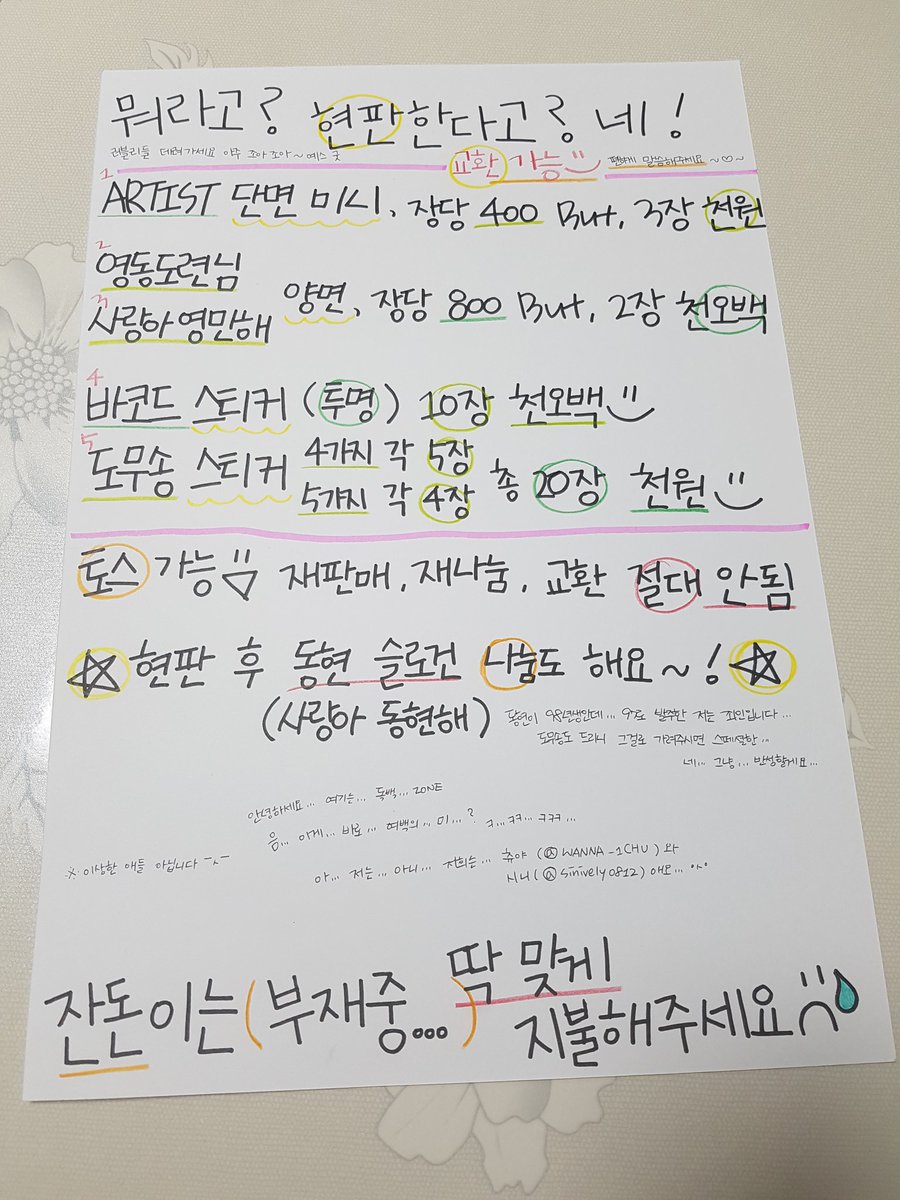 뭐라고? 현판한다고? 네!
러블리들 데려가세요 아주 조아조아~ 예스 굿
교환 가능 편하게 말씀해주세요 ~♡~
1
ARTIST 단면 미시, 장당 400 But, 3장 천원
2
영동도련님
3
사랑아영만해 양면, 장당 800 But, 2장 천오백
4
바코드 스티커 (투명) 10장 천오백
5
도무송 스티커 4가지 각 5장
5가지 각 4장 총 20장 천원
토스 가능 재판매, 재나눔, 교환 절대 안됨
☆ 현판 후 동현 슬로건 나눔도 해요~! ☆
(사랑아 동현해)
동현이 98년생인데... 97로 발주한 저는 죄인입니다...
도무송도 드리니 그걸로 가려주시면 스페셜한...
네... 그냥... 반성할게요...
안녕하세요... 여기는... 독백... ZONE
음... 이게... 바로... 여백의... 미...? ㅋ...ㅋㅋ...ㅋㅋㅋ...
※ 이상한 애들 아닙니다 ㅡㅅㅡ
아... 저는... 아니... 저희는... 츄야 (@WANNA_1CHU) 와
시니 (@sinively0812) 애오... •ㅅ•
잔돈이는 (부재중...) 딱 맞게
지불해주세요